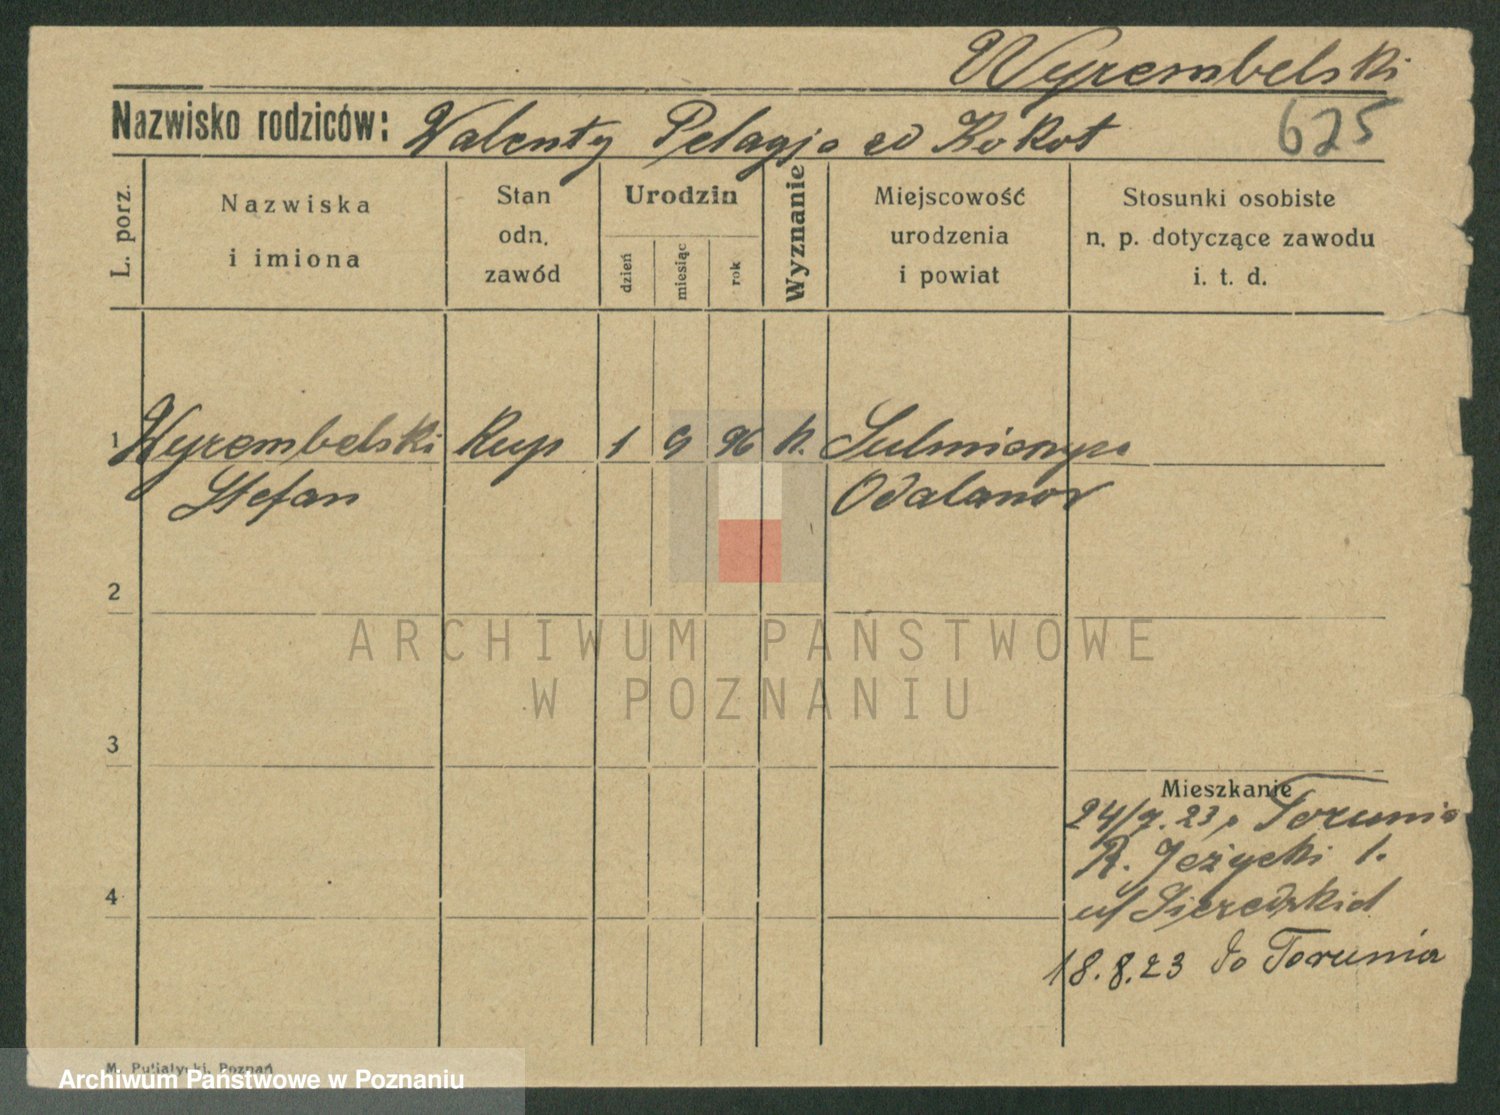 Wyrembelski
Nazwisko rodziców: Walenty Pelagja zd Kokot
625
L. porz.
Nazwiska
i imiona
Stan
odn.
zawód
Urodzin
dzień
miesiąc
rok
Wyznanie
Miejscowość
urodzenia
i powiat
Stosunki osobiste
n. p. dotyczące zawodu
i. t. d.
1 Wyrembelski Kup 1 9 96 k. Sulmierzyce
Stefan Odalanow
2
ARCHIWUM PAŃSTWOWE
W POZNANIU
3
Mieszkanie
24/7. 23 z Torunia
R. Jeżycki 1.
u/
4
18.8.23 do Torunia
M. Putiatycki, Poznań
Archiwum Państwowe w Poznaniu